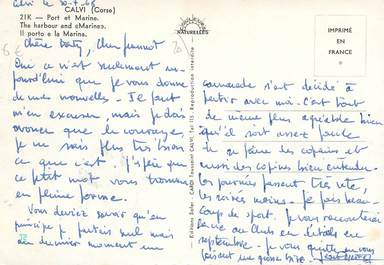 Calvi le 30-7-65
CALVI (Corse)
21K — Port et Marine.
The harbour and Marine.
Il porto e la Marina.
6€
NATURELLES
IMPRIMÉ
EN
FRANCE
Chère Daty, Cher Jeannot
Oui ce n'est seulement au-
jourd'hui que je vous donne
de mes nouvelles - Il faut
m'en excuser, mais je dois
avouer que le courage,
je ne sais plus très bien
ce que c'est. J'espère que
ce petit mot vous trouvera
en pleine forme.
Vous devriez savoir qu'en
principe je partais seul mais
au dernier moment un
camarade s'est décidé à
partir avec moi. C'est tout
de même plus agréable bien
qu'il soit assez facile
de se faire des copains et
aussi des copines bien entendu.
Les journées passent très vite,
les soirées moins. Je fais beau-
coup de sport. Je vous raconterai
la vie au Club en détails en
septembre. Je vous quitte en vous
faisant une grosse bise.
Editions Soler
CARDI Toussaint CALVI, Tél 115 - Reproduction interdite